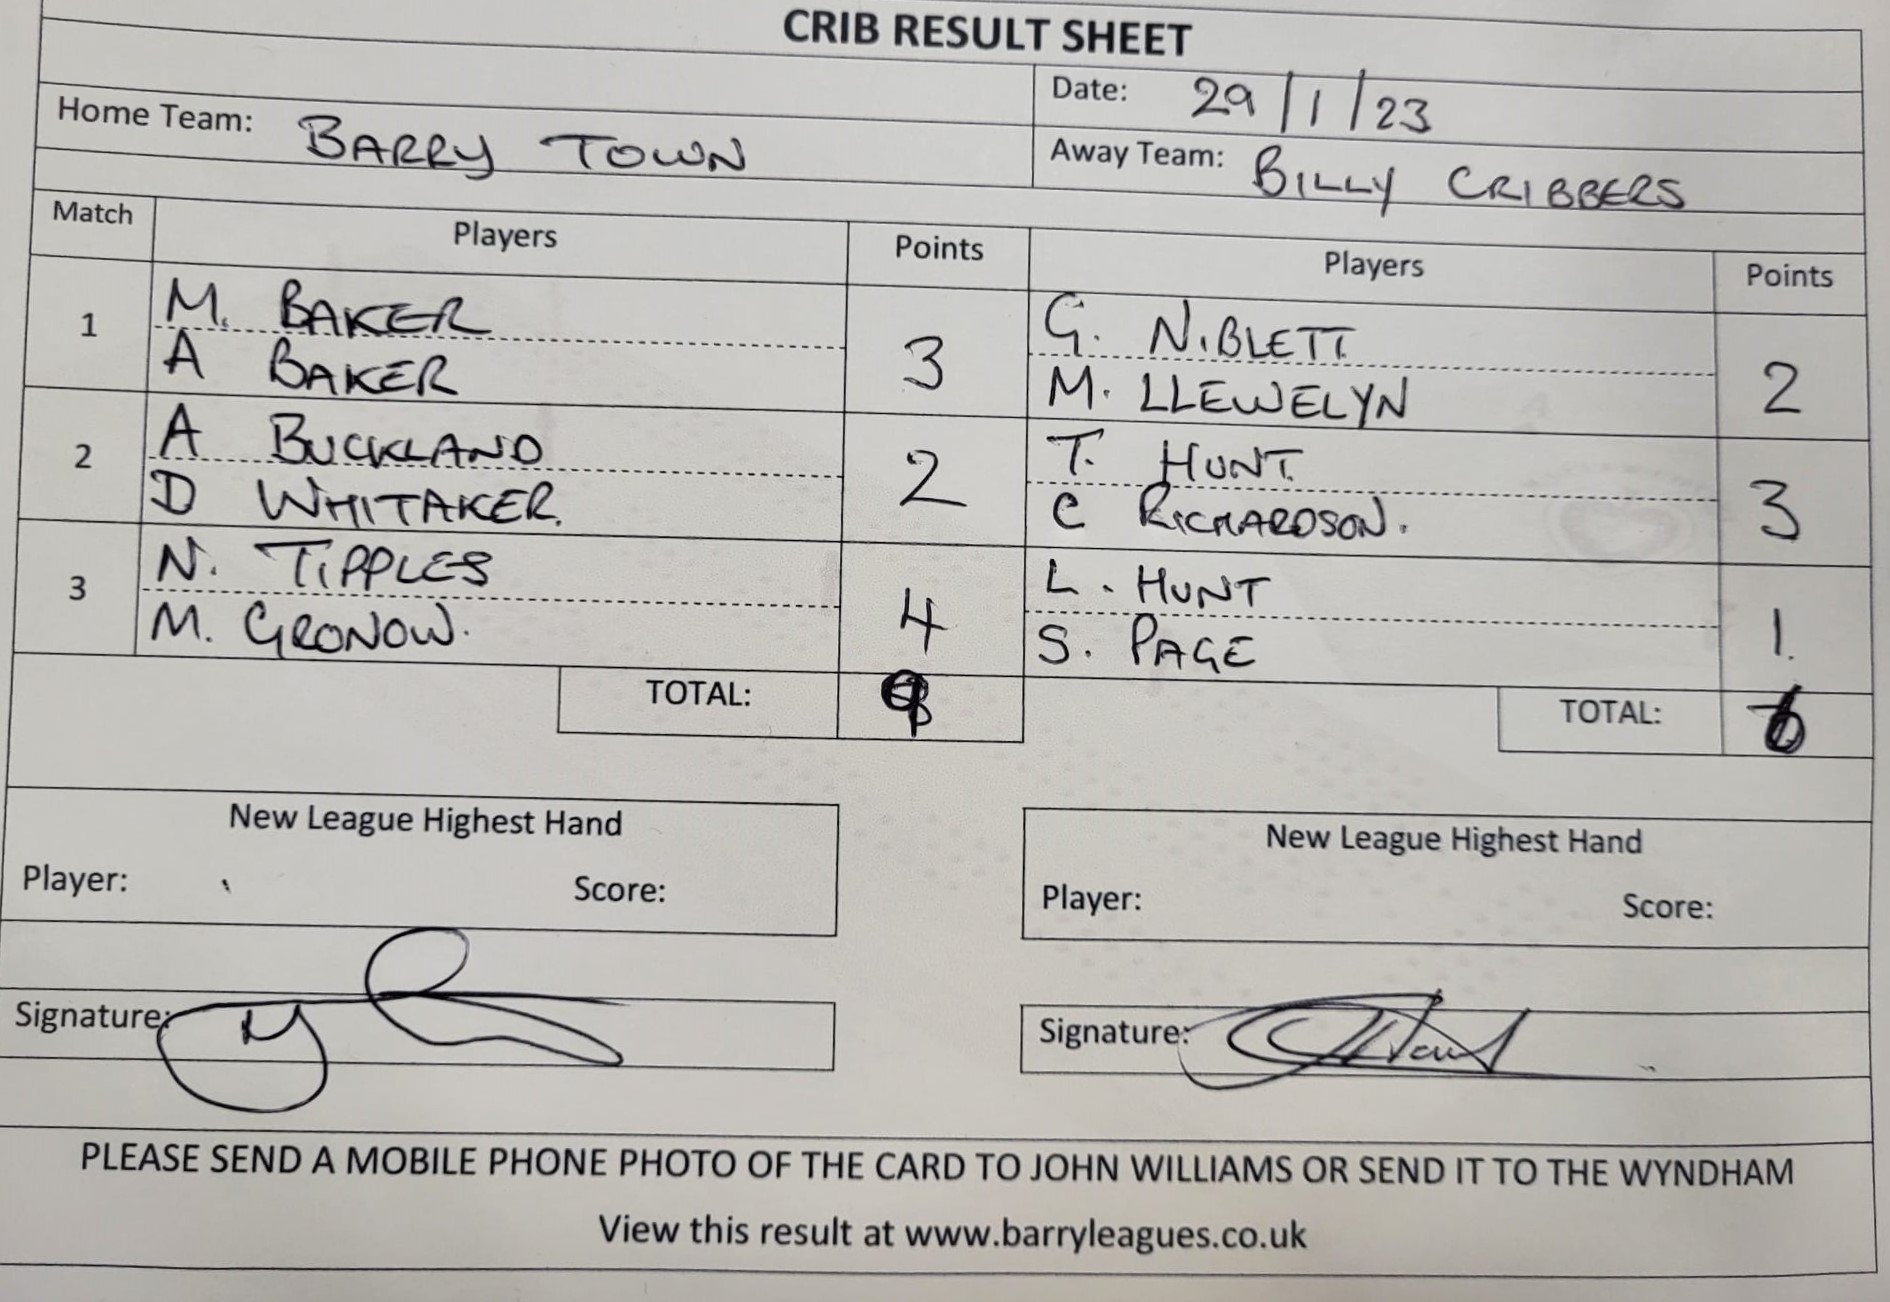 CRIB RESULT SHEET
Date: 29/1/23
Home Team: BARRY TOWN
Away Team: BILLY CRIBBERS
Match Players Points Players Points
1
M. BAKER
A BAKER
3
G. NIBLETT
M. LLEWELYN
2
2
A BUCKLAND
D WHITAKER.
2
T. HUNT.
C RICHARDSON.
3
3
N. TIPPLES
M. GRONOW.
4
L. HUNT
S. PAGE
1.
TOTAL: 9
TOTAL: 6
New League Highest Hand
Player: Score:
New League Highest Hand
Player: Score:
Signature:
Signature:
PLEASE SEND A MOBILE PHONE PHOTO OF THE CARD TO JOHN WILLIAMS OR SEND IT TO THE WYNDHAM
View this result at www.barryleagues.co.uk